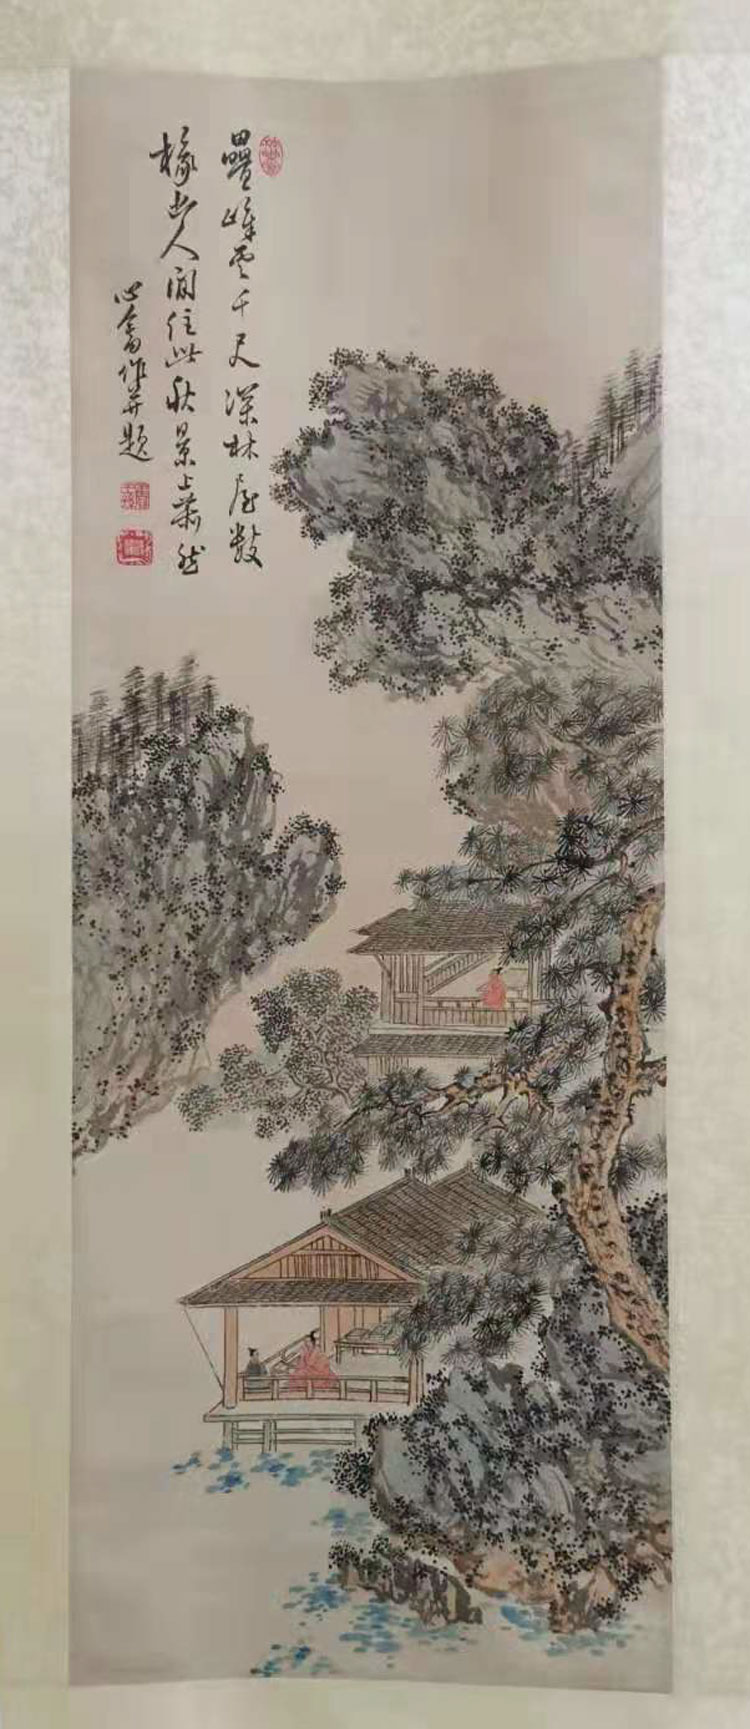 疊峰雲千尺深林屋數
椽幽人閒住此秋景正蕭然
心畬作并題